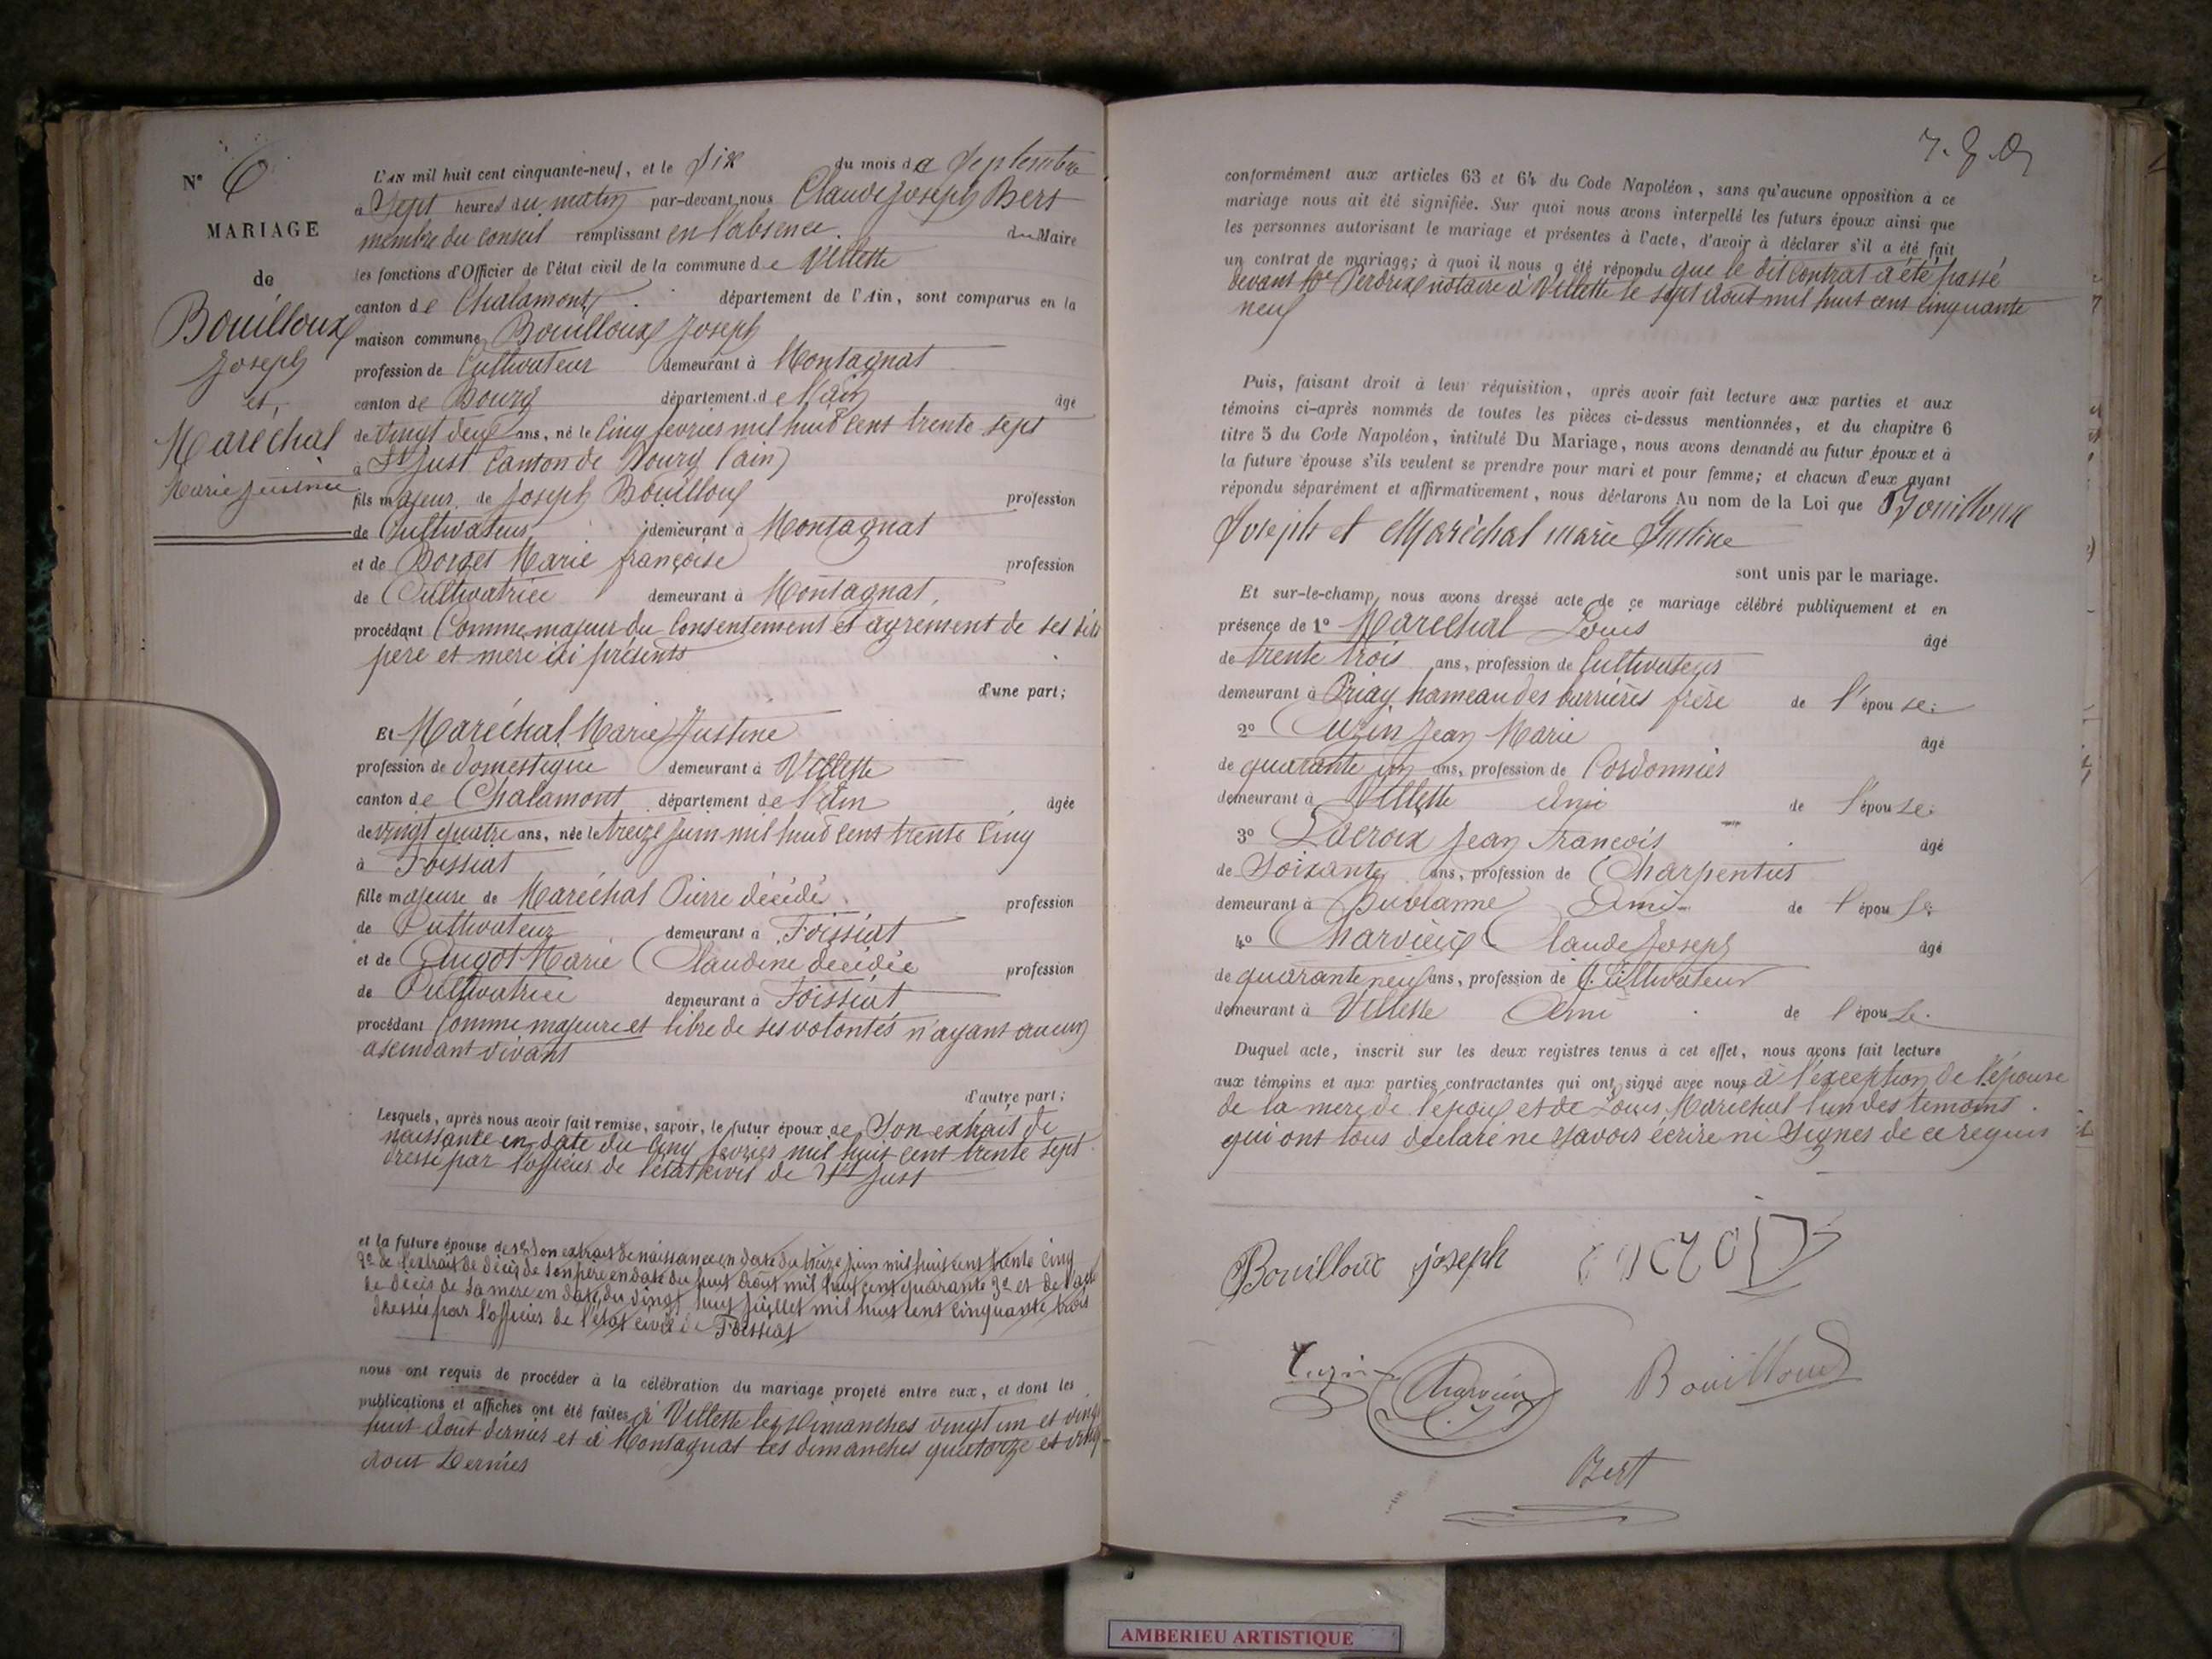 N° 6
MARIAGE
de
Bouilloux
Joseph
et
Maréchal
Marie Justine
L'AN mil huit cent cinquante-neuf, et le Dix du mois de Septembre
à Sept heures du matin par-devant nous Claude Joseph Bert
membre du Conseil remplissant en l'absence du Maire
les fonctions d'Officier de l'état civil de la commune de Villette
canton de Chalamont département de l'Ain, sont comparus en la
maison commune Bouilloux Joseph
profession de Cultivateur demeurant à Montagnat
canton de Bourg département de l'ain âgé
de vingt deux ans, né le Cinq fevrier mil huit cent trente sept
à St Just Canton de Bourg (ain)
fils majeur de Joseph Bouilloux profession
de Cultivateur demeurant à Montagnat
et de Borget Marie françoise profession
de Cultivatrice demeurant à Montagnat,
procédant Comme majeur du Consentement et agrement de ses dits
pere et mere ici présents
d'une part;
Et Maréchal Marie Justine
profession de domestique demeurant à Villette
canton de Chalamont département de l'Ain âgée
de vingt quatre ans, née le treize Juin mil huit cent trente Cinq
à Foissiat
fille majeure de Maréchal Pierre décédé profession
de Cultivateur demeurant à Foissiat
et de Augot Marie Claudine decédée profession
de Cultivatrice demeurant à Foissiat
procédant Comme majeure et libre de ses volontés n'ayant aucun
ascendant vivant
d'autre part;
Lesquels, après nous avoir fait remise, savoir, le futur époux de Son extrait de
naissance en date du Cinq fevrier mil huit cent trente sept
dressé par l'officier de l'état civil de St Just
et la future épouse de 1° Son extrait de naissance en date du treize juin mil huit cent trente Cinq
2° de l'extrait de décès de son père en date du huit Août mil huit cent quarante 3° et de l'acte
de décès de sa mere en date du vingt huit juillet mil huit cent Cinquante trois
dressés par l'officier de l'état civil de Foissiat
nous ont requis de procéder à la célébration du mariage projeté entre eux, et dont les
publications et affiches ont été faites à Villette les dimanches vingt un et vingt
huit Août dernier et à Montagnat les dimanches quatorze et vingt
Aout Dernier
conformément aux articles 63 et 64 du Code Napoléon, sans qu'aucune opposition à ce
mariage nous ait été signifiée. Sur quoi nous avons interpellé les futurs époux ainsi que
les personnes autorisant le mariage et présentes à l'acte, d'avoir à déclarer s'il a été fait
un contrat de mariage; à quoi il nous a été répondu que le dit Contrat a été passé
devant Me Perdrix notaire à Villette le sept Août mil huit cent Cinquante
neuf
Puis, faisant droit à leur réquisition, après avoir fait lecture aux parties et aux
témoins ci-après nommés de toutes les pièces ci-dessus mentionnées, et du chapitre 6
titre 5 du Code Napoléon, intitulé Du Mariage, nous avons demandé au futur époux et à
la future épouse s'ils veulent se prendre pour mari et pour femme; et chacun d'eux ayant
répondu séparément et affirmativement, nous déclarons Au nom de la Loi que Bouilloux
Joseph et Maréchal marie Justine
sont unis par le mariage.
Et sur-le-champ, nous avons dressé acte de ce mariage célébré publiquement et en
présence de 1° Marechal Louis âgé
de trente trois ans, profession de Cultivateur
demeurant à Priay hameau des barrières frère de l'épouse;
2° Cuzin Jean Marie âgé
de quarante un ans, profession de Cordonnier
demeurant à Villette Ami de l'épouse;
3° Lacroix Jean François âgé
de Soixante ans, profession de Charpentier
demeurant à Bublanne Ami de l'épouse;
4° Charvieux Claude Joseph âgé
de quarante neuf ans, profession de Cultivateur
demeurant à Villette Ami de l'épouse.
Duquel acte, inscrit sur les deux registres tenus à cet effet, nous avons fait lecture
aux témoins et aux parties contractantes qui ont signé avec nous à l'exception de l'épouse
de la mere de l'époux et de Louis Marechal l'un des temoins
qui ont tous declaré ne savoir écrire ni Signer de ce requis
Bouilloux joseph
Cuzin Charvieux Bouilloud
Bert
AMBERIEU ARTISTIQUE